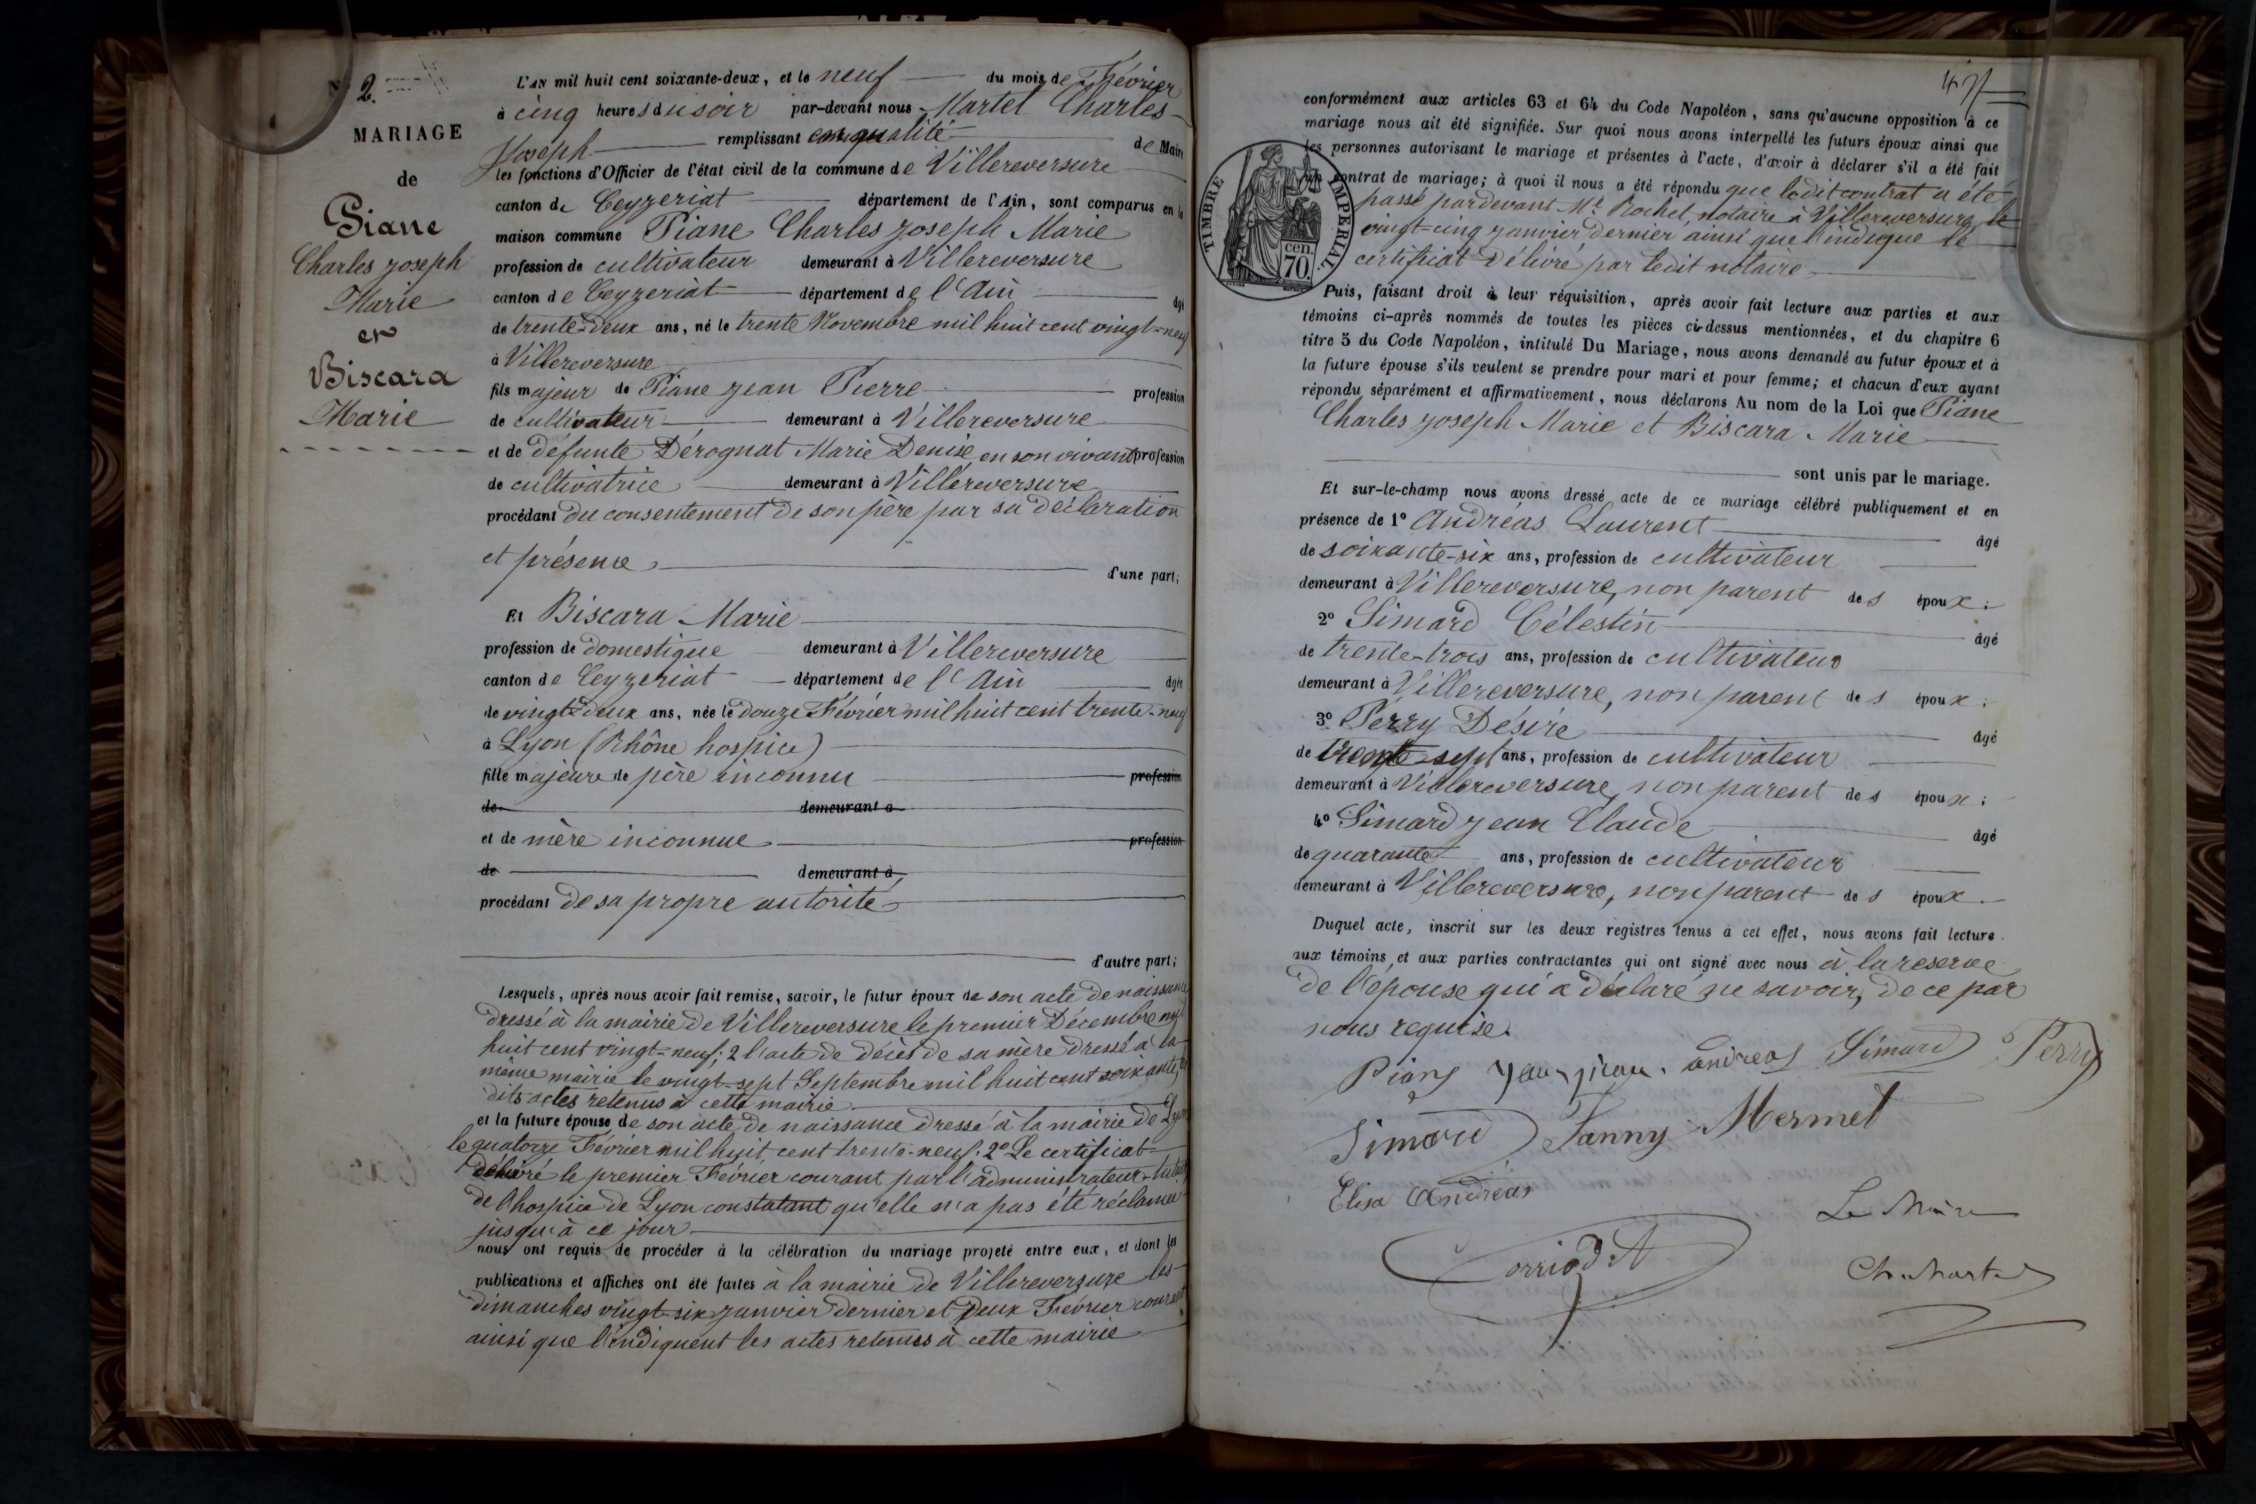 N° 2.
MARIAGE
de
Piane
Charles Joseph
Marie
et
Biscara
Marie
L'AN mil huit cent soixante-deux, et le neuf du mois de Février
à cinq heures du soir par-devant nous Martel Charles
Joseph remplissant en qualité de Maire
les fonctions d'Officier de l'état civil de la commune de Villereversure
canton de Ceyzeriat département de l'Ain, sont comparus en la
maison commune Piane Charles Joseph Marie
profession de cultivateur demeurant à Villereversure
canton de Ceyzeriat département de l'Ain âgé
de trente-deux ans, né le trente Novembre mil huit cent vingt-neuf
à Villereversure
fils majeur de Piane Jean Pierre profession
de cultivateur demeurant à Villereversure
et de défunte Dérognat Marie Denise en son vivant profession
de cultivatrice demeurant à Villereversure
procédant du consentement de son père par sa déclaration
et présence d'une part;
Et Biscara Marie
profession de domestique demeurant à Villereversure
canton de Ceyzeriat département de l'Ain âgée
de vingt-deux ans, née le douze Février mil huit cent trente-neuf
à Lyon (Rhône hospice)
fille majeure de père inconnu profession
de demeurant à
et de mère inconnue profession
de demeurant à
procédant de sa propre autorité
d'autre part;
Lesquels, après nous avoir fait remise, savoir, le futur époux de son acte de naissance
dressé à la mairie de Villereversure le premier Décembre mil
huit cent vingt-neuf; 2 l'acte de décès de sa mère dressé à la
même mairie le vingt-sept Septembre mil huit cent soixante,
dits actes retenus à cette mairie
et la future épouse de son acte de naissance dressé à la mairie de Lyon
le quatorze Février mil huit cent trente-neuf. 2° Le certificat
délivré le premier Février courant par l'administrateur
de l'hospice de Lyon constatant qu'elle n'a pas été réclamée
jusqu'à ce jour
nous ont requis de procéder à la célébration du mariage projeté entre eux, et dont les
publications et affiches ont été faites à la mairie de Villereversure les
dimanches vingt-six Janvier dernier et deux Février courant
ainsi que l'indiquent les actes retenus à cette mairie
47
conformément aux articles 63 et 64 du Code Napoléon, sans qu'aucune opposition à ce
mariage nous ait été signifiée. Sur quoi nous avons interpellé les futurs époux ainsi que
les personnes autorisant le mariage et présentes à l'acte, d'avoir à déclarer s'il a été fait
un contrat de mariage; à quoi il nous a été répondu que ledit contrat a été
passé pardevant Me Rochet, notaire à Villereversure, le
vingt-cinq Janvier dernier ainsi que l'indique le
certificat délivré par ledit notaire
TIMBRE IMPERIAL.
cen.
70
Puis, faisant droit à leur réquisition, après avoir fait lecture aux parties et aux
témoins ci-après nommés de toutes les pièces ci-dessus mentionnées, et du chapitre 6
titre 5 du Code Napoléon, intitulé Du Mariage, nous avons demandé au futur époux et à
la future épouse s'ils veulent se prendre pour mari et pour femme; et chacun d'eux ayant
répondu séparément et affirmativement, nous déclarons Au nom de la Loi que Piane
Charles Joseph Marie et Biscara Marie
sont unis par le mariage.
Et sur-le-champ nous avons dressé acte de ce mariage célébré publiquement et en
présence de 1° Andréas Laurent âgé
de soixante-six ans, profession de cultivateur
demeurant à Villereversure, non parent des époux;
2° Simard Célestin âgé
de trente-trois ans, profession de cultivateur
demeurant à Villereversure, non parent des époux;
3° Perry Désiré âgé
de trente sept ans, profession de cultivateur
demeurant à Villereversure, non parent des époux;
4° Simard Jean Claude âgé
de quarante ans, profession de cultivateur
demeurant à Villereversure, non parent des époux.
Duquel acte, inscrit sur les deux registres tenus à cet effet, nous avons fait lecture
aux témoins et aux parties contractantes qui ont signé avec nous à la reserve
de l'épouse qui a déclaré ne savoir, de ce par
nous requise.
Andreas Simard Perry
Simard Fanny Mermet
Elisa Andréas
Le Maire
Corriod A
Ch. Martel